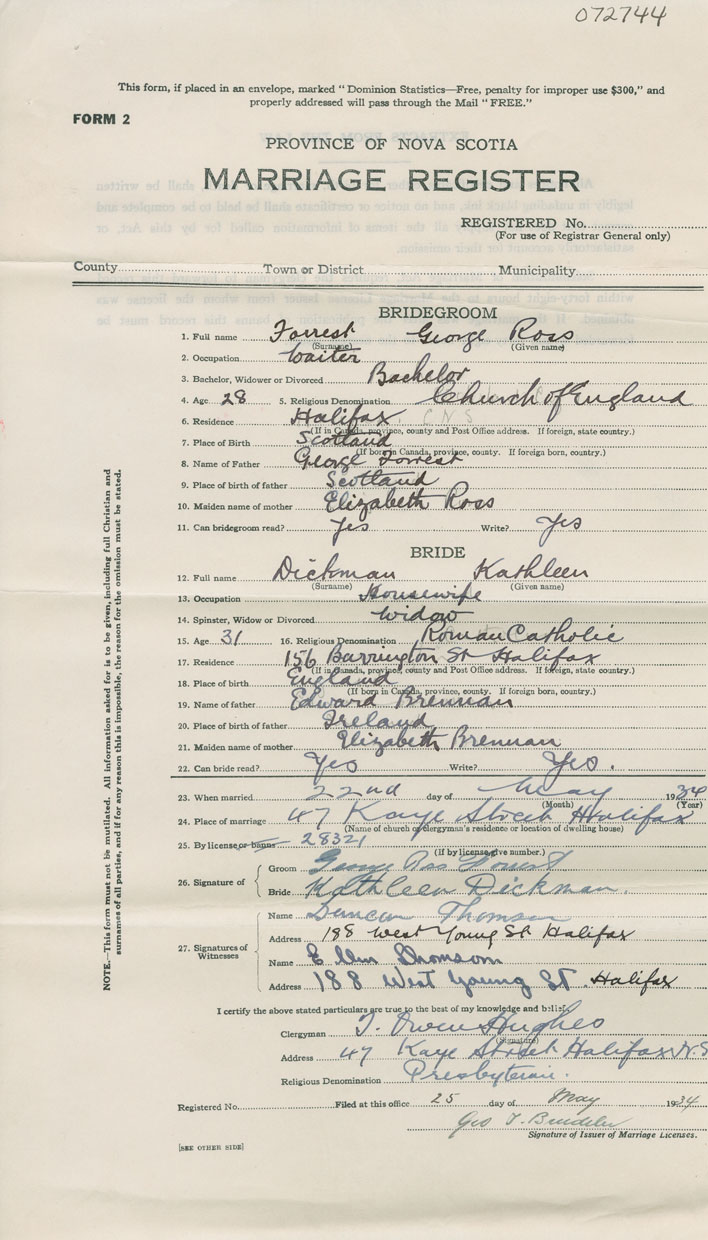 072744
This form, if placed in an envelope, marked "Dominion Statistics—Free, penalty for improper use $300," and
properly addressed will pass through the Mail "FREE."
FORM 2
PROVINCE OF NOVA SCOTIA
MARRIAGE REGISTER
REGISTERED No.
(For use of Registrar General only)
County Town or District Municipality
BRIDEGROOM
1. Full name Forrest George Ross
(Surname) (Given name)
2. Occupation Waiter
3. Bachelor, Widower or Divorced Bachelor
4. Age 28 5. Religious Denomination Church of England
6. Residence Halifax. C N S
(If in Canada, province, county and Post Office address. If foreign, state country.)
7. Place of Birth Scotland
(If born in Canada, province, county. If foreign born, country.)
8. Name of Father George Forrest
9. Place of birth of father Scotland
10. Maiden name of mother Elizabeth Ross
11. Can bridegroom read? Yes Write? Yes
BRIDE
12. Full name Dickman Kathleen
(Surname) (Given name)
13. Occupation Housewife
14. Spinster, Widow or Divorced Widow
15. Age 31 16. Religious Denomination Roman Catholic
17. Residence 156 Barrington St Halifax
(If in Canada, province, county and Post Office address. If foreign, state country.)
18. Place of birth England
(If born in Canada, province, county. If foreign born, country.)
19. Name of father Edward Brennan
20. Place of birth of father Ireland
21. Maiden name of mother Elizabeth Brennan
22. Can bride read? Yes Write? Yes.
23. When married 22nd day of May 1934
(Month) (Year)
24. Place of marriage 47 Kaye Street Halifax
(Name of church or clergyman's residence or location of dwelling house)
25. By license or banns 28321
(If by license, give number.)
26. Signature of
Groom George Ross Forrest
Bride Kathleen Dickman.
27. Signatures of Witnesses
Name Duncan Thomson
Address 188 West Young St Halifax
Name Ellen Thomson
Address 188 West Young St. Halifax
I certify the above stated particulars are true to the best of my knowledge and belief.
Clergyman T. Owen Hughes
(Signature)
Address 47 Kaye Street Halifax N.S
Religious Denomination Presbyterian.
Registered No. Filed at this office 25 day of May 1934
Geo T.
Signature of Issuer of Marriage Licenses.
[SEE OTHER SIDE]
NOTE.—This form must not be mutilated. All information asked for is to be given, including full Christian and
surnames of all parties, and if for any reason this is impossible, the reason for the omission must be stated.